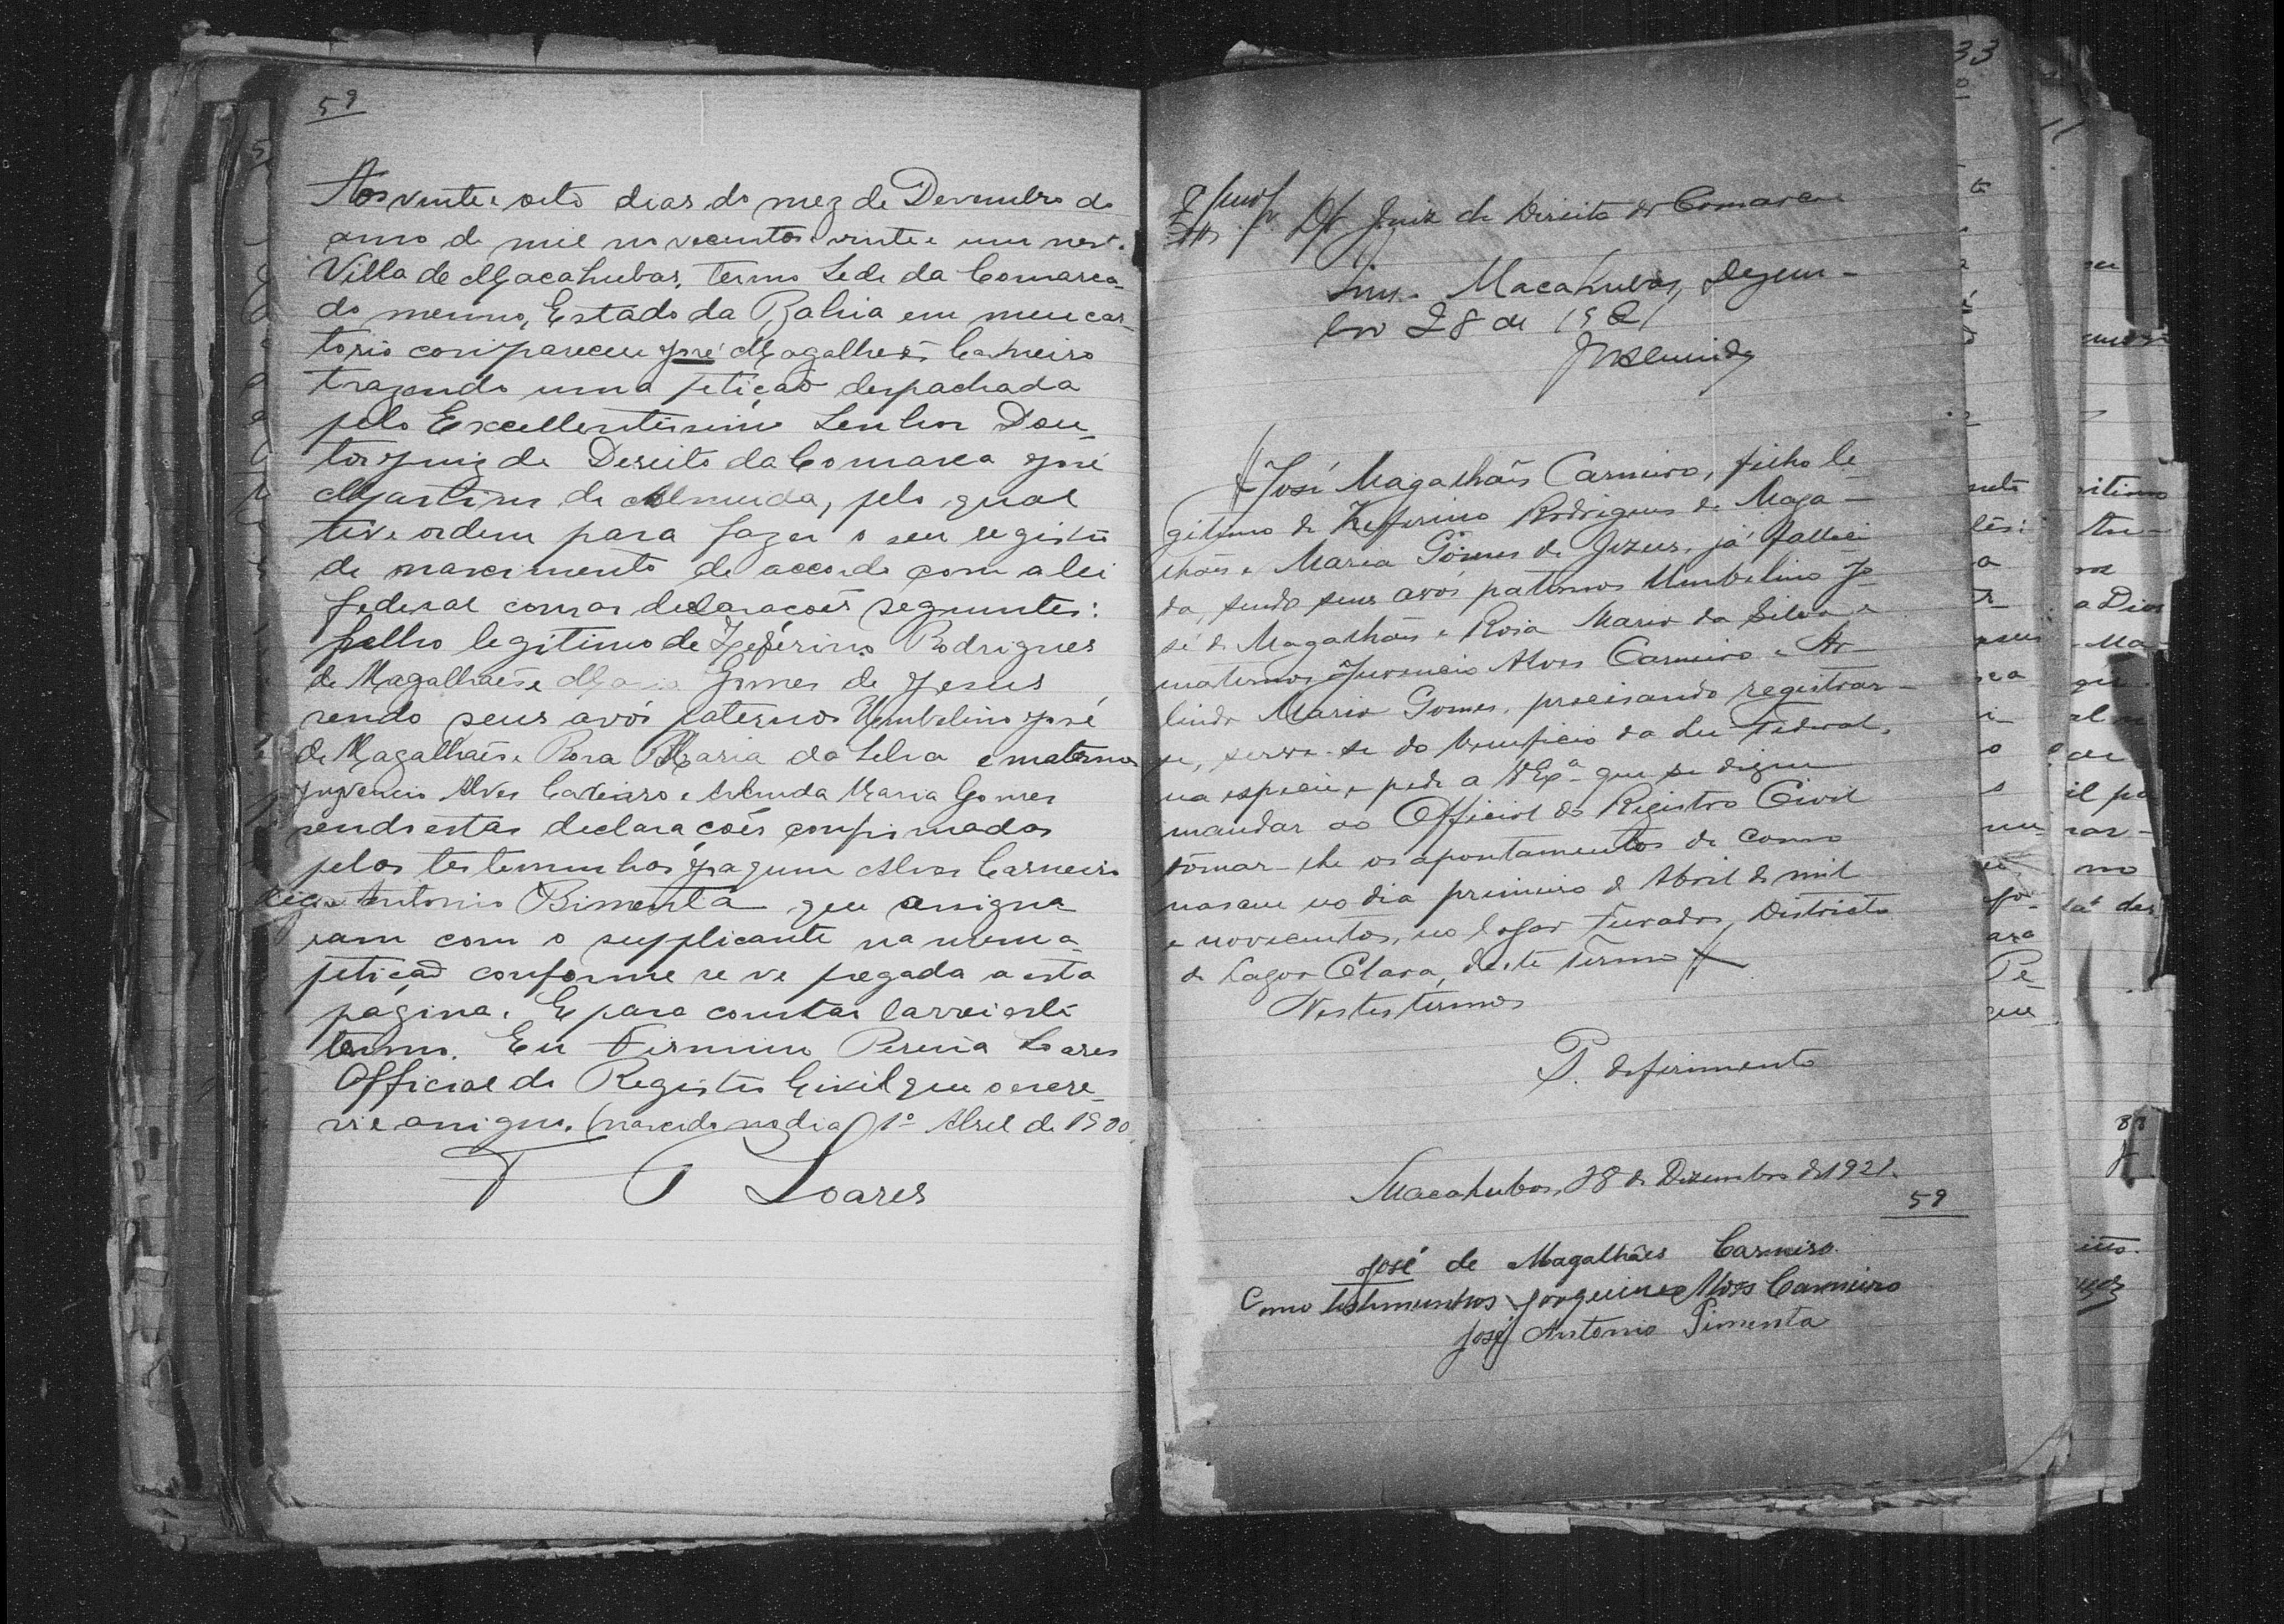 59
Aos vinte e oito dias do mez de Dezembro do
anno de mil novecentos e vinte e um nesta
Villa de Macahubas, termo Sede da Comarca
do mesmo, Estado da Bahia em meu car-
torio compareceu José Magalhães Carneiro
trazendo uma petição despachada
pelo Excellentissimo Senhor Dou-
tor Juiz de Direito da Comarca José
Martins de Almeida, pelo qual
tive ordem para fazer o seu registro
de nascimento de accordo com a lei
federal com as declarações seguintes:
filho legitimo de Zeferino Rodrigues
de Magalhães e Maria Gomes de Jesus,
sendo seus avós paternos Umbelino José
de Magalhães e Rosa Maria da Silva e maternos
Juvencio Alves Carneiro e Arlinda Maria Gomes
sendo estas declarações confirmadas
pelas testemunhas Joaquim Alves Carneiro
Antonio Pimenta que assigna
ram com o supplicante na mesma
petição conforme se ve pegada a esta
página. E para constar lavrei este
termo. Eu Firmino Pereira Soares
Official do Registro Civil que o escre-
vi e assigno. (nascido no dia 1º Abril de 1900
F P Soares
33
Dr. Juiz de Direito da Comarca
Sim. Macahubas, Dezem-
bro 28 de 1921
JMAlmeida
José Magalhães Carneiro, filho le-
gitimo de Zefferino Rodrigues de Maga-
lhães e Maria Gomes de Jezus, já falleci-
da, sendo seus avós paternos Umbelino Jo-
sé de Magalhães e Rosa Maria da Silva e
maternos Juvencio Alves Carneiro e Ar-
linda Maria Gomes, precisando registrar-
se, serve-se do beneficio da Lei Federal,
na especie, e pede a V Exª que se digne
mandar ao Official do Registro Civil
tomar-lhe os apontamentos de como
nasceu no dia primeiro de Abril de mil
e novecentos, no logar Furados, Districto
de Lagoa Clara, deste Termo
Nestes termos
P. deferimento
Macahubas, 28 de Dezembro de 1921.
59
José de Magalhães Carneiro.
Como testemunhas Joaquim Alves Carneiro
José Antonio Pimenta